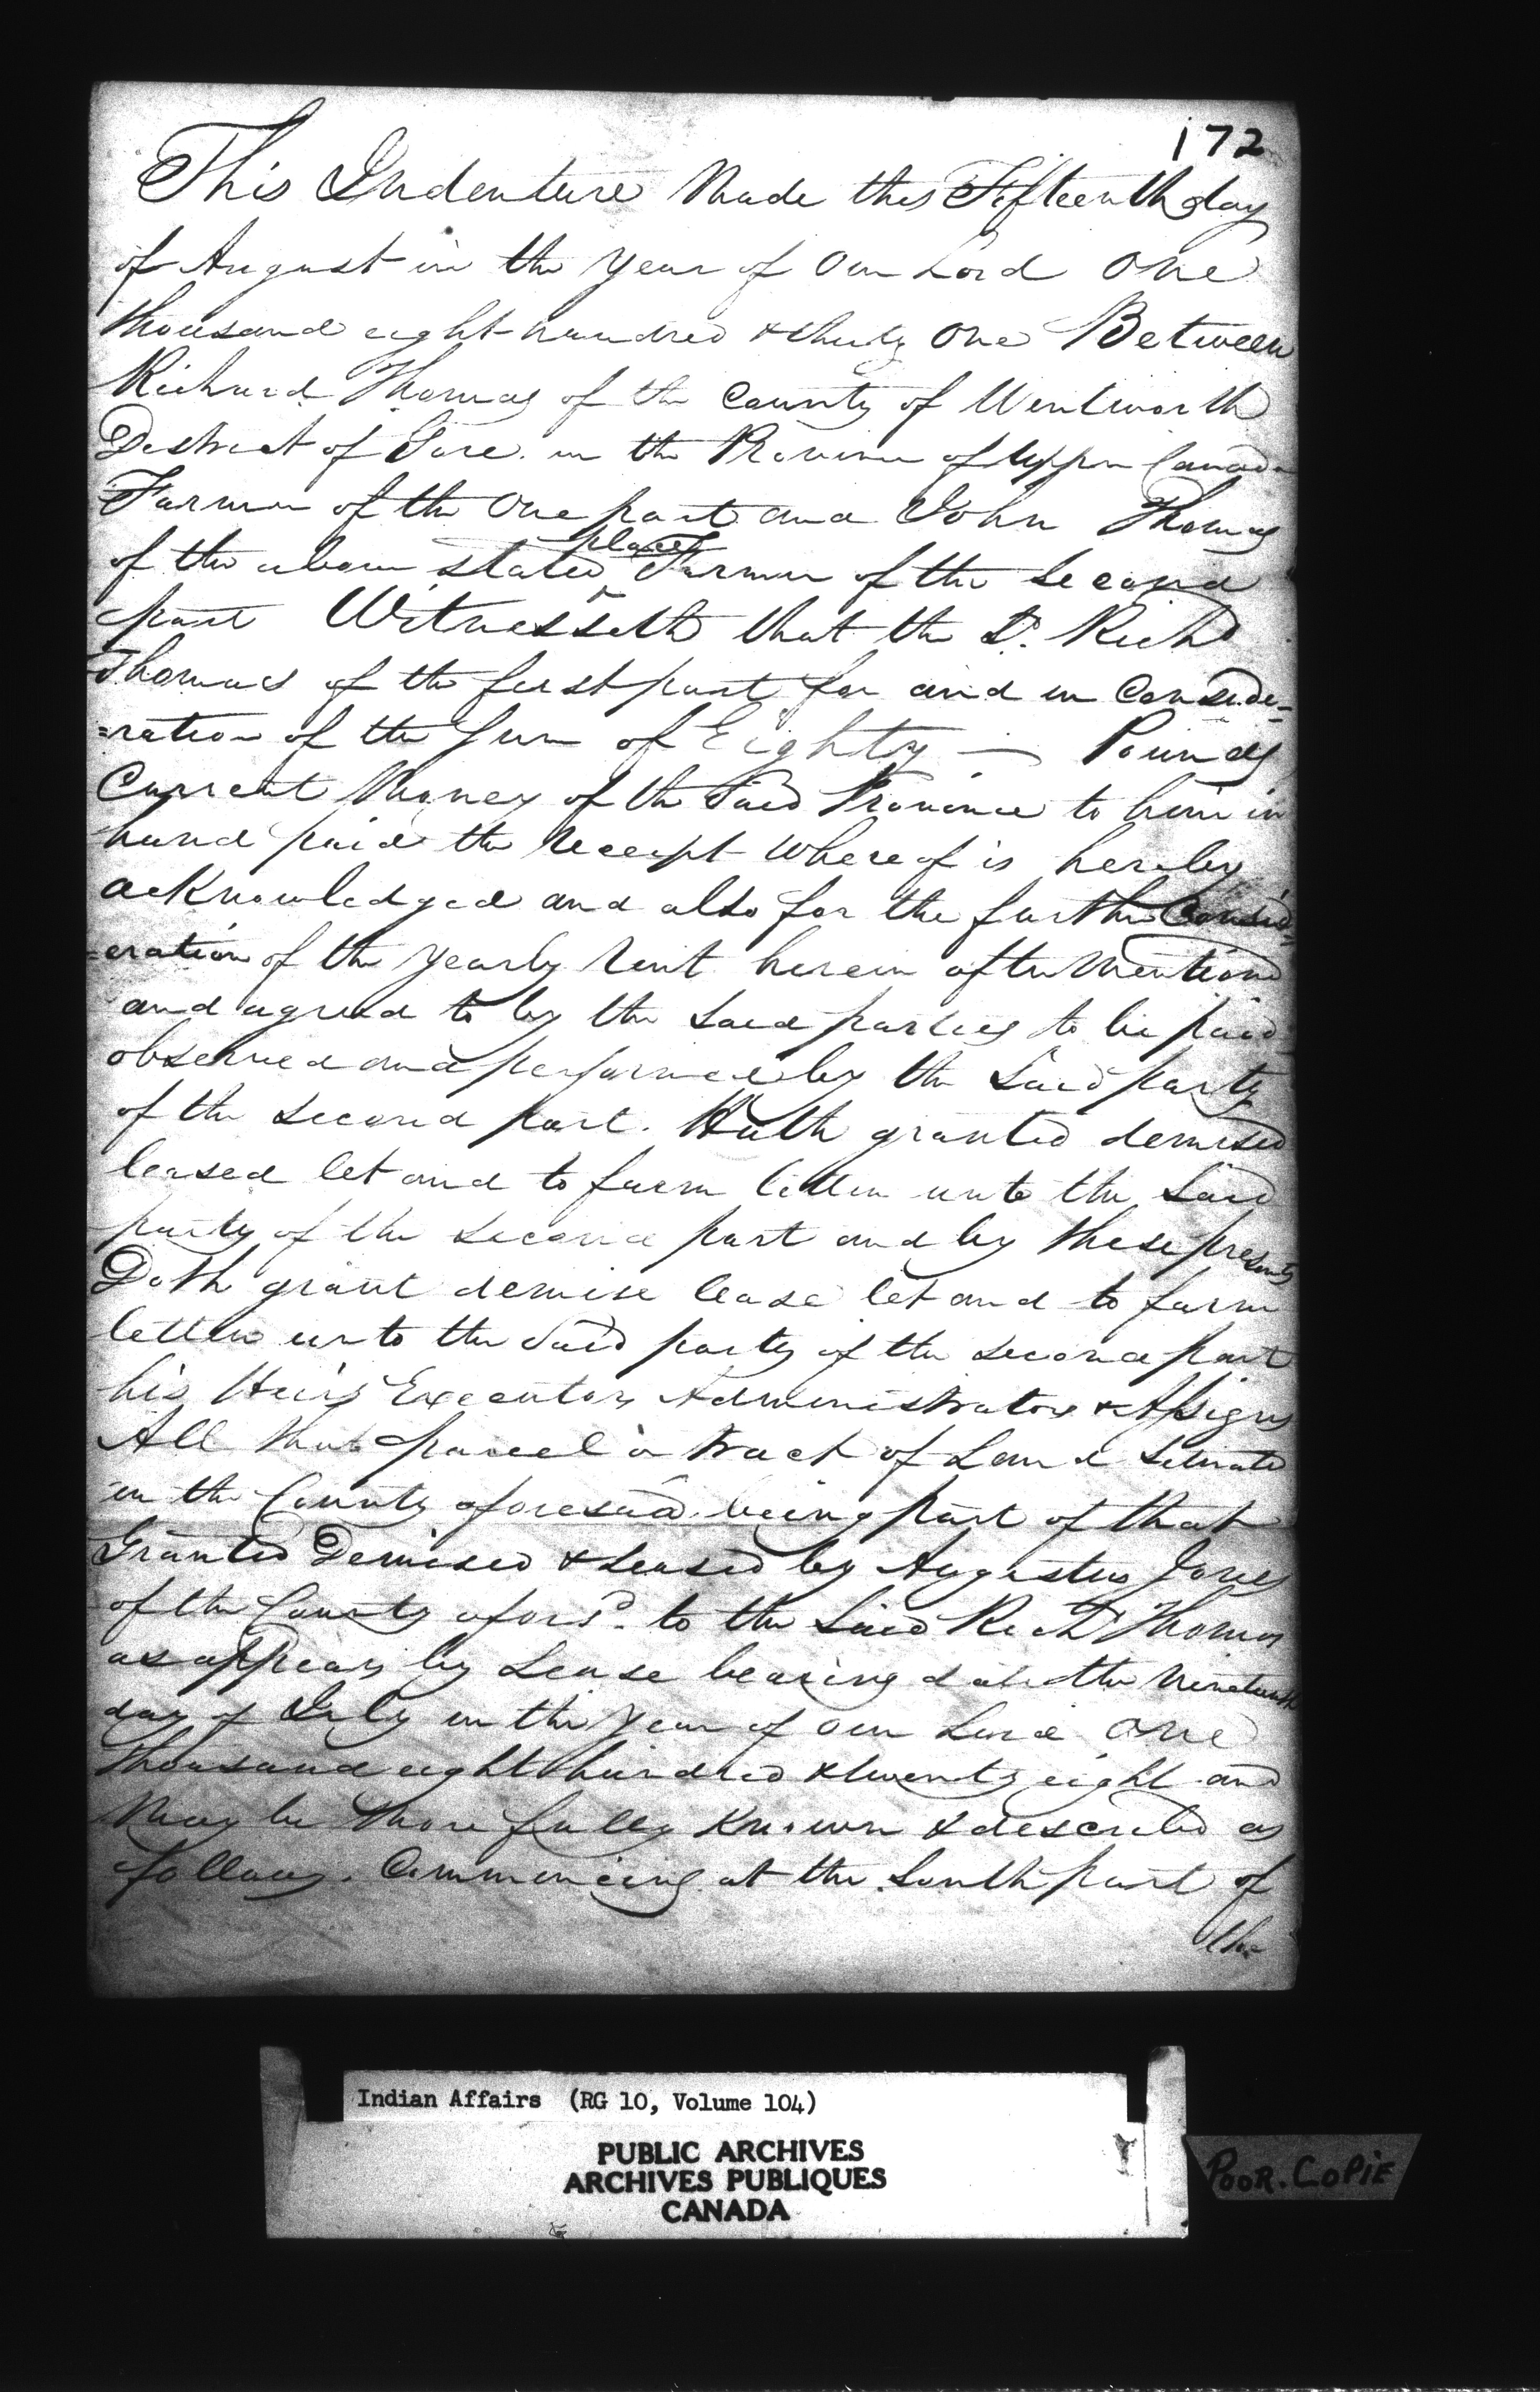 172
This Indenture Made this Fifteenth day
of August in the Year of Our Lord One
thousand eight hundred & thirty One Between
Richard Thomas of the County of Wentworth
District of Gore in the Province of Upper Canada
Farmer of the One part and John Thomas
of the above stated place Farmer of the Second
part Witnesseth that the Sd. Richd
Thomas of the first part for and in Conside-
=ration of the Sum of Eighty — Pounds
Current Money of the Said Province to him in
hand paid the Receipt Whereof is hereby
acknowledged and also for the further Consid=
=eration of the Yearly Rent herein after Mentiond
and agreed to by the Said parties to be paid
observed and performed by the Said party
of the Second part. Hath granted demised
leased let and to farm letten unto the Said
party of the Second part and by these presents
Doth grant demise lease let and to farm
letten unto the Said party of the Second part
his Heirs Executors Administrators & Assigns
All that parcel or tract of Land Situate
in the County aforesaid being part of that
Granted Demised & Leased by Augustus Jones
of the County afors'd. to the Said Richd Thomas
as appears by Lease bearing date the Nineteenth
day of July in the Year of Our Lord One
thousand eight hundred & twenty eight and
May be More fully Known & described as
follows. Commencing at the South part of
the
Indian Affairs (RG 10, Volume 104)
PUBLIC ARCHIVES
ARCHIVES PUBLIQUES
CANADA
POOR.COPIE